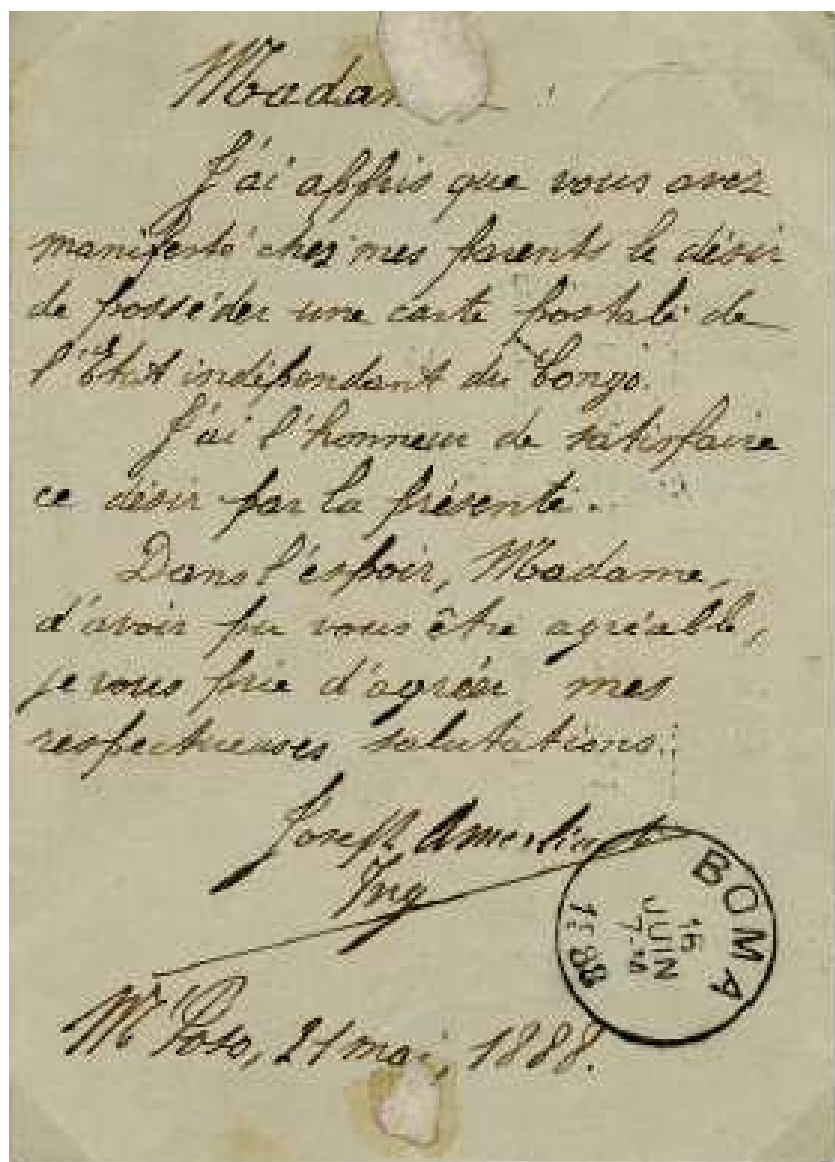 Madam
J'ai appris que vous avez
manifesté chez mes parents le désir
de posséder une carte postale de
l'Etat indépendant du Congo.
J'ai l'honneur de satisfaire
ce désir par la présente.
Dans l'espoir, Madame,
d'avoir pu vous être agréable,
je vous prie d'agréer mes
respectueuses salutations.
Joseph
Ing
BOMA
JUIN
1888
21 mai, 1888.